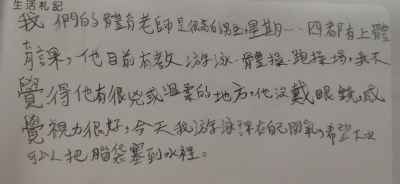 生活札記
我們的體育老師是很高的男生星期一、四都有上體
育課，他目前有教游泳、體操、跑操場，我不
覺得他有很兇或溫柔的地方，他沒戴眼鏡，感
覺視力很好，今天我游泳課在自己閉氣，希望不要
有人把腦袋塞到水裡。